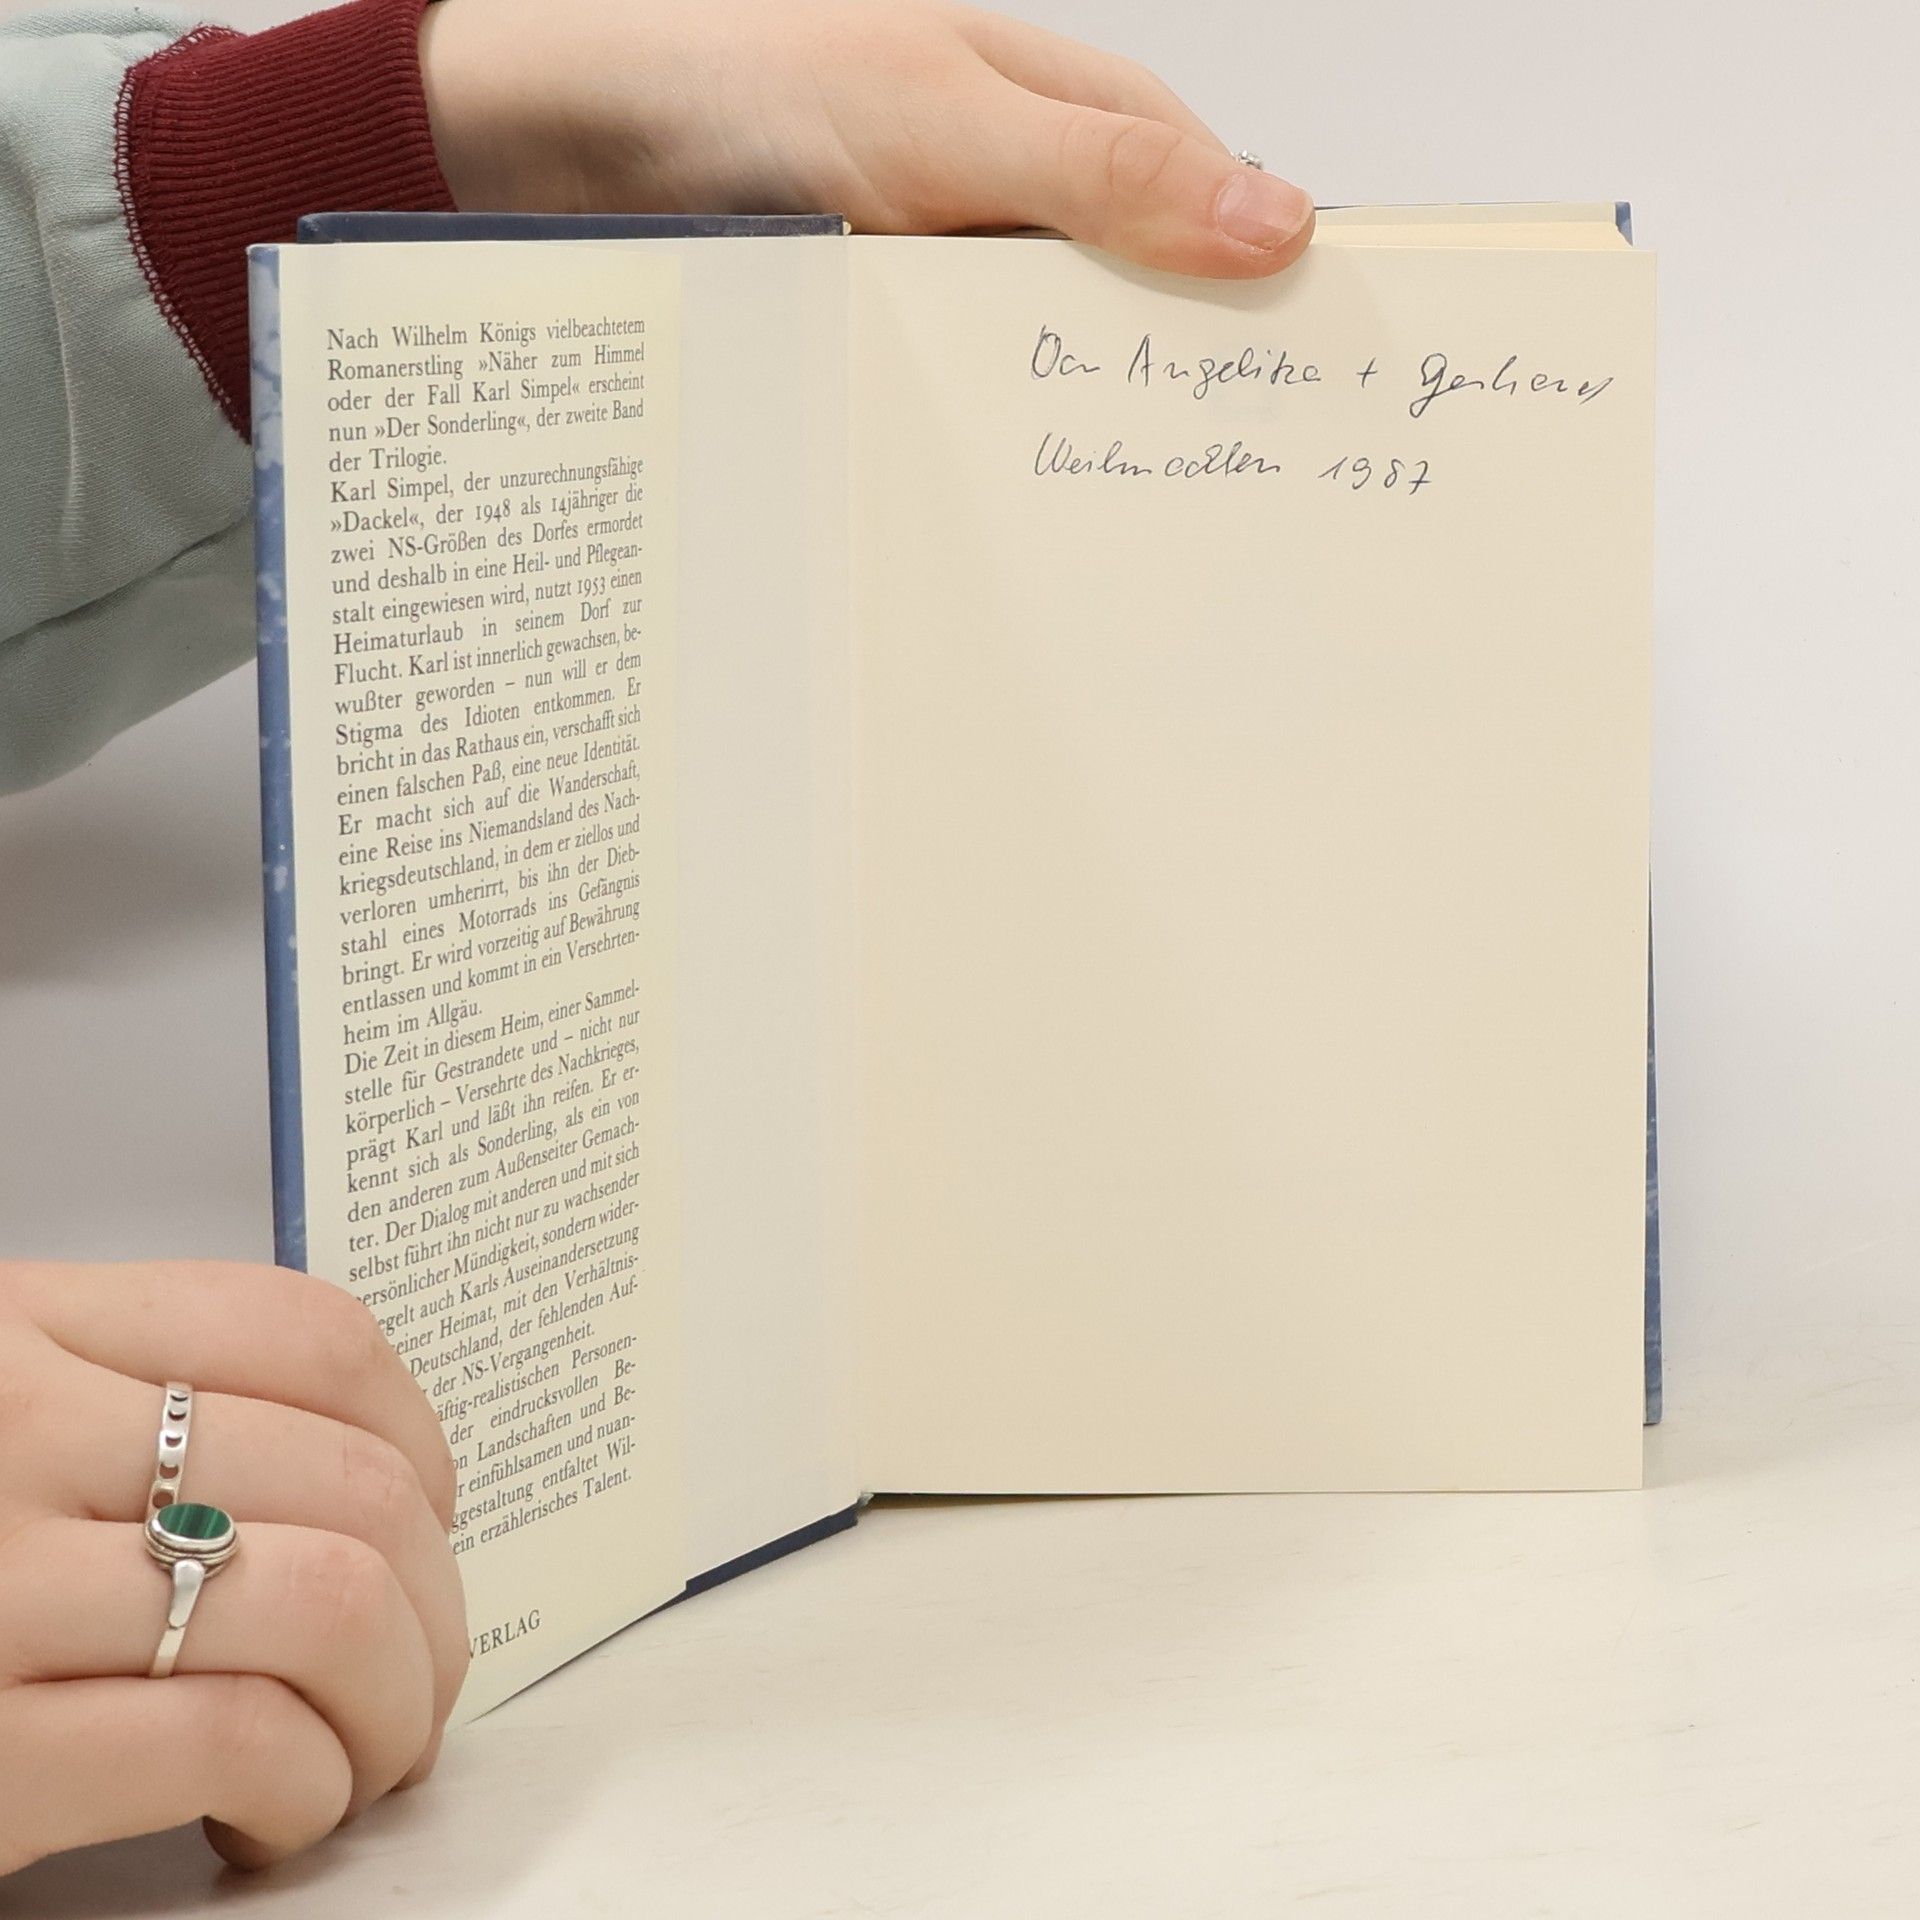 Nach Wilhelm Königs vielbeachtetem
Romanerstling »Näher zum Himmel
oder der Fall Karl Simpel« erscheint
nun »Der Sonderling«, der zweite Band
der Trilogie.
Karl Simpel, der unzurechnungsfähige
»Dackel«, der 1948 als 14jähriger die
zwei NS-Größen des Dorfes ermordet
und deshalb in eine Heil- und Pflegean-
stalt eingewiesen wird, nutzt 1953 einen
Heimaturlaub in seinem Dorf zur
Flucht. Karl ist innerlich gewachsen, be-
wußter geworden – nun will er dem
Stigma des Idioten entkommen. Er
bricht in das Rathaus ein, verschafft sich
einen falschen Paß, eine neue Identität.
Er macht sich auf die Wanderschaft,
eine Reise ins Niemandsland des Nach-
kriegsdeutschland, in dem er ziellos und
verloren umherirrt, bis ihn der Dieb-
stahl eines Motorrads ins Gefängnis
bringt. Er wird vorzeitig auf Bewährung
entlassen und kommt in ein Versehrten-
heim im Allgäu.
Die Zeit in diesem Heim, einer Sammel-
stelle für Gestrandete und – nicht nur
körperlich – Versehrte des Nachkrieges,
prägt Karl und läßt ihn reifen. Er er-
kennt sich als Sonderling, als ein von
den anderen zum Außenseiter Gemach-
ter. Der Dialog mit anderen und mit sich
selbst führt ihn nicht nur zu wachsender
persönlicher Mündigkeit, sondern wider-
egelt auch Karls Auseinandersetzung
einer Heimat, mit den Verhältnis-
Deutschland, der fehlenden Auf-
der NS-Vergangenheit.
äftig-realistischen Personen-
der eindrucksvollen Be-
on Landschaften und Be-
r einfühlsamen und nuan-
ggestaltung entfaltet Wil-
ein erzählerisches Talent.
VERLAG
Von Angelika + Gerhard
Weihnachten 1987